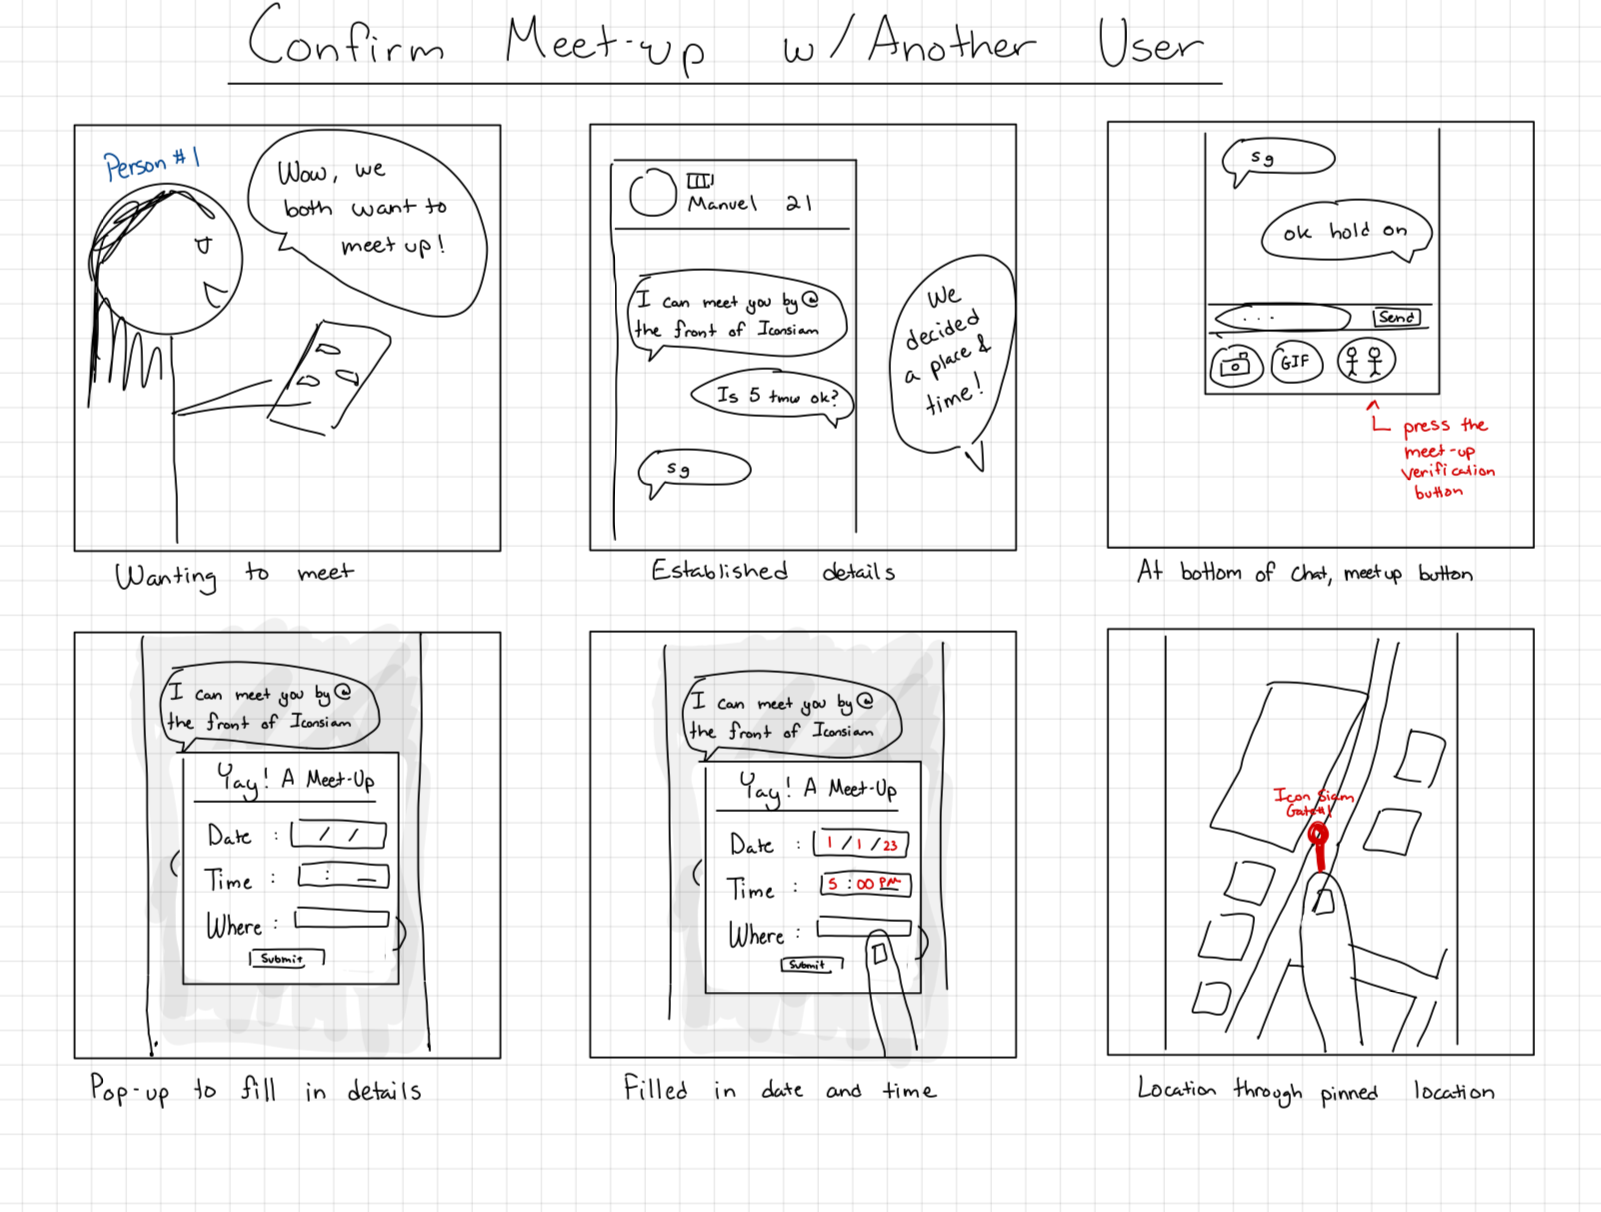 Confirm Meet-up w/Another User
Person #1
Wow, we
both want to
meet up!
Wanting to meet
Manuel 21
I can meet you by@
the front of Iconsiam
Is 5 tmw ok?
sg
We
decided
a place &
time!
Established details
sg
ok hold on
...
Send
GIF
press the
meet-up
verification
button
At bottom of chat, meetup button
I can meet you by@
the front of Iconsiam
Yay! A Meet-Up
Date : / /
Time : : _
Where :
Submit
Pop-up to fill in details
I can meet you by@
the front of Iconsiam
Yay! A Meet-Up
Date : 1/1/23
Time : 5:00 PM
Where :
Submit
Filled in date and time
Icon Siam
Gate#1
Location through pinned location